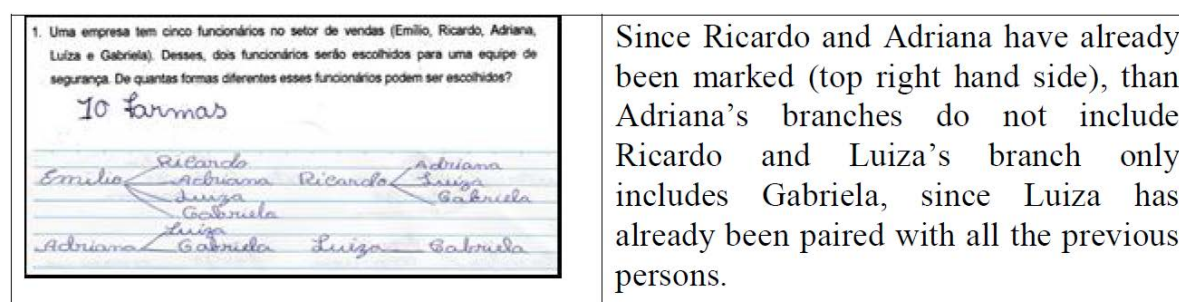 1. Uma empresa tem cinco funcionários no setor de vendas (Emílio, Ricardo, Adriana,
Luíza e Gabriela). Desses, dois funcionários serão escolhidos para uma equipe de
segurança. De quantas formas diferentes esses funcionários podem ser escolhidos?
10 formas
Ricardo
Emilio Adriana
Luiza
Gabriela
Adriana
Ricardo Luiza
Gabriela
Luiza
Adriana Gabriela
Luiza Gabriela
Since Ricardo and Adriana have already
been marked (top right hand side), than
Adriana's branches do not include
Ricardo and Luiza's branch only
includes Gabriela, since Luiza has
already been paired with all the previous
persons.